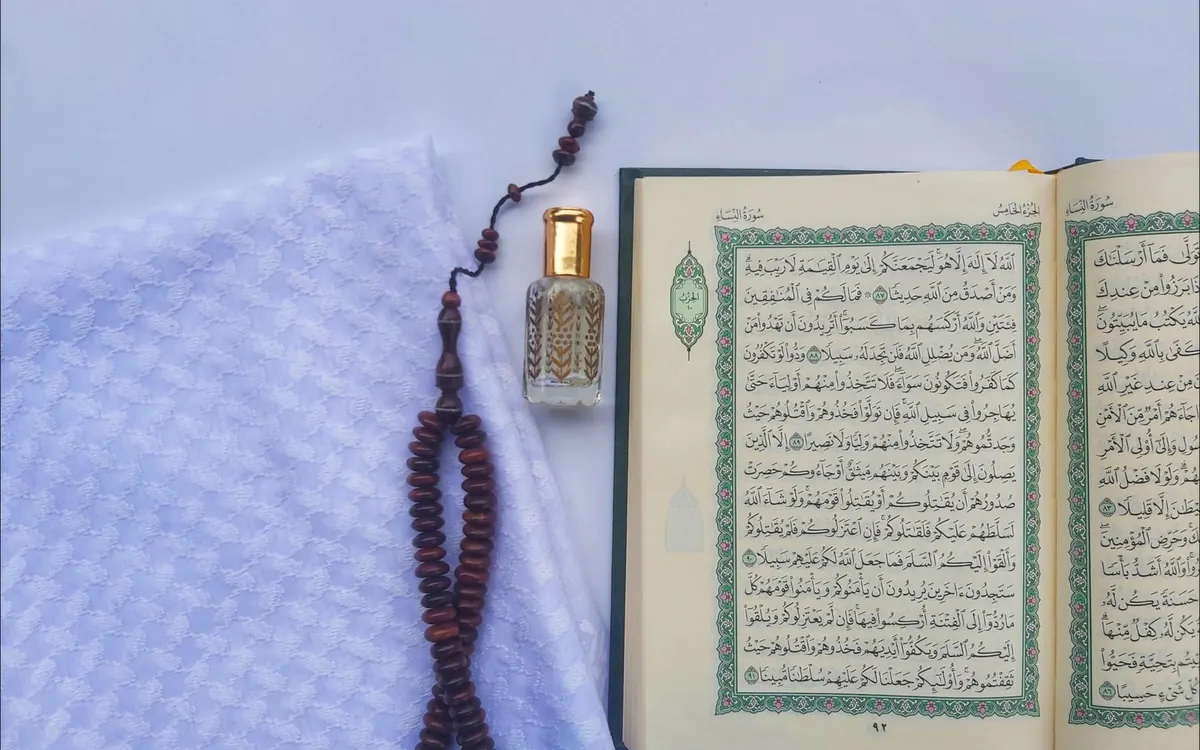 سُورَةُ النِّسَاءِ
فَمَآ أَرْسَلْنَٰكَ
بَرَزُوا۟ مِنْ عِندِكَ
يَكْتُبُ مَا يُبَيِّتُونَ
كَفَىٰ بِٱللَّهِ وَكِيلًا
مِنْ عِندِ غَيْرِ ٱللَّهِ
جَآءَهُمْ أَمْرٌ مِّنَ ٱلْأَمْنِ
وَإِلَىٰٓ أُو۟لِى ٱلْأَمْرِ
وَلَوْلَا فَضْلُ ٱللَّهِ
إِلَّا قَلِيلًا ٨٣
وَحَرِّضِ ٱلْمُؤْمِنِينَ
وَٱللَّهُ أَشَدُّ بَأْسًا
حَسَنَةً يَكُن لَّهُۥ
يَكُن لَّهُۥ كِفْلٌ مِّنْهَا
بِتَحِيَّةٍ فَحَيُّوا۟
شَىْءٍ حَسِيبًا ٨٦
الجُزْءُ الخَامِسُ
سُورَةُ النِّسَاءِ
ٱللَّهُ لَآ إِلَٰهَ إِلَّا هُوَ لَيَجْمَعَنَّكُمْ إِلَىٰ يَوْمِ ٱلْقِيَٰمَةِ لَا رَيْبَ فِيهِ
وَمَنْ أَصْدَقُ مِنَ ٱللَّهِ حَدِيثًا ٨٧ ۞ فَمَا لَكُمْ فِى ٱلْمُنَٰفِقِينَ
فِئَتَيْنِ وَٱللَّهُ أَرْكَسَهُم بِمَا كَسَبُوٓا۟ أَتُرِيدُونَ أَن تَهْدُوا۟ مَنْ
أَضَلَّ ٱللَّهُ وَمَن يُضْلِلِ ٱللَّهُ فَلَن تَجِدَ لَهُۥ سَبِيلًا ٨٨ وَدُّوا۟ لَوْ تَكْفُرُونَ
كَمَا كَفَرُوا۟ فَتَكُونُونَ سَوَآءً فَلَا تَتَّخِذُوا۟ مِنْهُمْ أَوْلِيَآءَ حَتَّىٰ
يُهَاجِرُوا۟ فِى سَبِيلِ ٱللَّهِ فَإِن تَوَلَّوْا۟ فَخُذُوهُمْ وَٱقْتُلُوهُمْ حَيْثُ
وَجَدتُّمُوهُمْ وَلَا تَتَّخِذُوا۟ مِنْهُمْ وَلِيًّا وَلَا نَصِيرًا ٨٩ إِلَّا ٱلَّذِينَ
يَصِلُونَ إِلَىٰ قَوْمٍۭ بَيْنَكُمْ وَبَيْنَهُم مِّيثَٰقٌ أَوْ جَآءُوكُمْ حَصِرَتْ
صُدُورُهُمْ أَن يُقَٰتِلُوكُمْ أَوْ يُقَٰتِلُوا۟ قَوْمَهُمْ وَلَوْ شَآءَ ٱللَّهُ
لَسَلَّطَهُمْ عَلَيْكُمْ فَلَقَٰتَلُوكُمْ فَإِنِ ٱعْتَزَلُوكُمْ فَلَمْ يُقَٰتِلُوكُمْ
وَأَلْقَوْا۟ إِلَيْكُمُ ٱلسَّلَمَ فَمَا جَعَلَ ٱللَّهُ لَكُمْ عَلَيْهِمْ سَبِيلًا ٩٠
سَتَجِدُونَ ءَاخَرِينَ يُرِيدُونَ أَن يَأْمَنُوكُمْ وَيَأْمَنُوا۟ قَوْمَهُمْ كُلَّ
مَا رُدُّوٓا۟ إِلَى ٱلْفِتْنَةِ أُرْكِسُوا۟ فِيهَا فَإِن لَّمْ يَعْتَزِلُوكُمْ وَيُلْقُوٓا۟
إِلَيْكُمُ ٱلسَّلَمَ وَيَكُفُّوٓا۟ أَيْدِيَهُمْ فَخُذُوهُمْ وَٱقْتُلُوهُمْ حَيْثُ
ثَقِفْتُمُوهُمْ وَأُو۟لَٰٓئِكُمْ جَعَلْنَا لَكُمْ عَلَيْهِمْ سُلْطَٰنًا مُّبِينًا ٩١
٩٢
الحِزْبُ
١٠